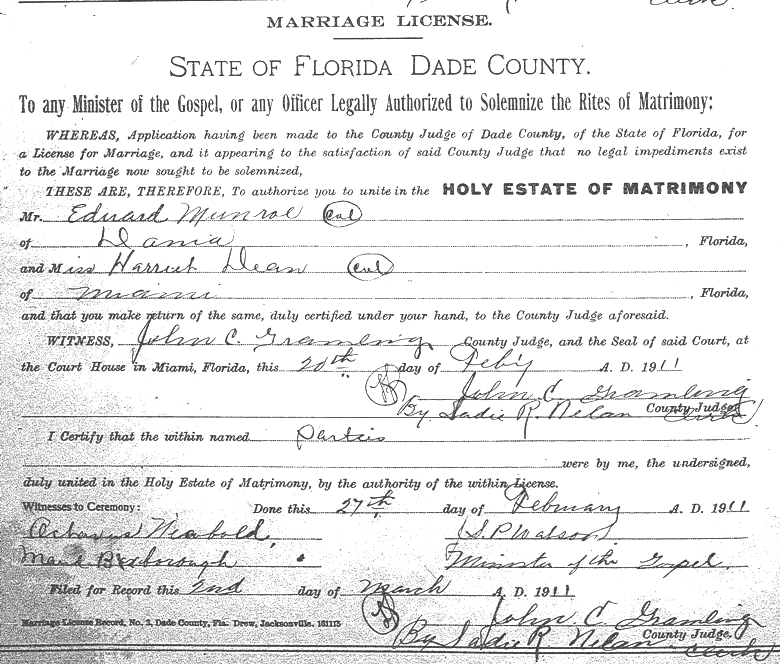 Clerk.
MARRIAGE LICENSE.
STATE OF FLORIDA DADE COUNTY.
To any Minister of the Gospel, or any Officer Legally Authorized to Solemnize the Rites of Matrimony:
WHEREAS, Application having been made to the County Judge of Dade County, of the State of Florida, for
a License for Marriage, and it appearing to the satisfaction of said County Judge that no legal impediments exist
to the Marriage now sought to be solemnized,
THESE ARE, THEREFORE, To authorize you to unite in the HOLY ESTATE OF MATRIMONY
Mr. Edward Munroe Col
of Dania, Florida,
and Miss Harriet Dean Col
of Miami, Florida,
and that you make return of the same, duly certified under your hand, to the County Judge aforesaid.
WITNESS, John C. Gramling County Judge, and the Seal of said Court, at
the Court House in Miami, Florida, this 20th day of Feb'y A. D. 1911
John C. Gramling
By Sadie R. Nelan County Judge. Clerk
I Certify that the within named parties
were by me, the undersigned,
duly united in the Holy Estate of Matrimony, by the authority of the within License.
Witnesses to Ceremony: Done this 27th day of February A. D. 1911
S. P. Watson
Maud Minister of the Gospel.
Filed for Record this 2nd day of March A. D. 1911
John C. Gramling
Marriage License Record, No. 3, Dade County, Fla. Drew, Jacksonville, 151115 County Judge.
By Sadie R. Nelan Clerk